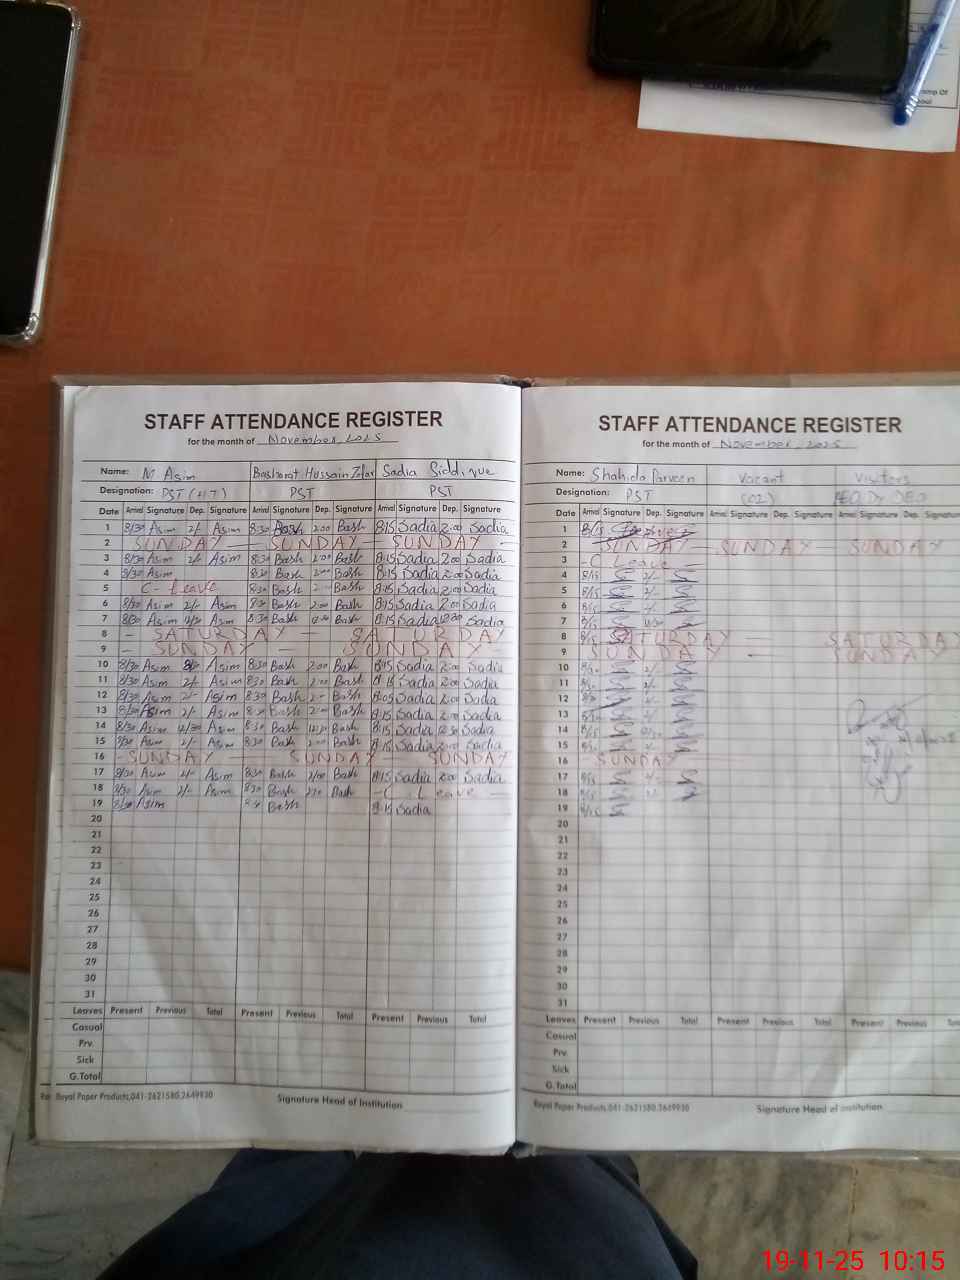 STAFF ATTENDANCE REGISTER
for the month of November, 2025
Name: M Asim Basharat Hussain Zafar Sadia Siddique
Designation: PST (HT) PST PST
Date Arrival Signature Dep. Signature Arrival Signature Dep. Signature Arrival Signature Dep. Signature
1 8/30 Asim 2/- Asim 8:30 Bash 2:00 Bash 8:15 Sadia 2:00 Sadia
2 SUNDAY - SUNDAY - SUNDAY -
3 8/30 Asim 2/- Asim 8:30 Bash 2:00 Bash 8:15 Sadia 2:00 Sadia
4 8/30 Asim 8:30 Bash 2:00 Bash 8:15 Sadia 2:00 Sadia
5 C - Leave 8:30 Bash Bash 8:15 Sadia 2:00 Sadia
6 8/30 Asim 2/- Asim 8:30 Bash 2:00 Bash 8:15 Sadia 2:00 Sadia
7 8/30 Asim Asim 8:30 Bash 12:30 Bash 8:15 Sadia 12:30 Sadia
8 - SATURDAY - SATURDAY
9 - SUNDAY - SUNDAY -
10 8/30 Asim Asim 8:30 Bash 2:00 Bash 8:15 Sadia 2:00 Sadia
11 8/30 Asim 2/- Asim 8:30 Bash 2:00 Bash 8:15 Sadia 2:00 Sadia
12 8/30 Asim 2/- Asim 8:30 Bash Bash Sadia 2:00 Sadia
13 8/30 Asim 2/- Asim 8:30 Bash Bash 8:15 Sadia 2:00 Sadia
14 8/30 Asim 12/30 Asim 8:30 Bash 12:30 Bash 8:15 Sadia 12:30 Sadia
15 8/30 Asim 2/- Asim 8:30 Bash 2:00 Bash 8:15 Sadia 2:00 Sadia
16 - SUNDAY - SUNDAY - SUNDAY
17 8/30 Asim 2/- Asim 8:30 Bash 2:00 Bash 8:15 Sadia 2:00 Sadia
18 8/30 Asim 2/- Asim 8:30 Bash Bash - C Leave -
19 8/30 Asim Bash 8:15 Sadia
20
21
22
23
24
25
26
27
28
29
30
31
Leaves Present Previous Total Present Previous Total Present Previous Total
Casual
Prv.
Sick
G.Total
Royal Paper Products,041-2621580,2649930 Signature Head of Institution
STAFF ATTENDANCE REGISTER
for the month of November, 2025
Name: Shahida Parveen Vacant Visitors
Designation: PST (02)
Date Arrival Signature Dep. Signature Arrival Signature Dep. Signature Arrival Signature Dep. Signature
1 8/15
2 SUNDAY - SUNDAY - SUNDAY
3 - C Leave -
4 8/15 2/-
5 8/15
6 8/15
7 8/15
8 SATURDAY - SATURDAY
9 SUNDAY - SUNDAY
10
11
12
13
14 8/15
15
16 - SUNDAY -
17 8/15
18 8/15
19 8/15
20
21
22
23
24
25
26
27
28
29
30
31
Leaves Present Previous Total Present Previous Total Present Previous
Casual
Prv.
Sick
G.Total
Royal Paper Products,041-2621580,2649930 Signature Head of Institution
19-11-25 10:15